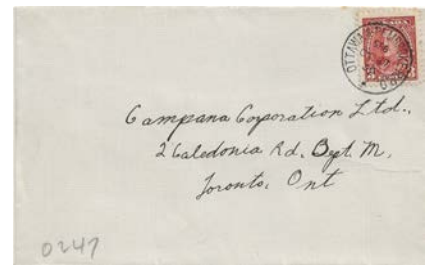 OTTAWA
Campana Corporation Ltd.,
2 Caledonia Rd. Dept. M,
Toronto, Ont
0247